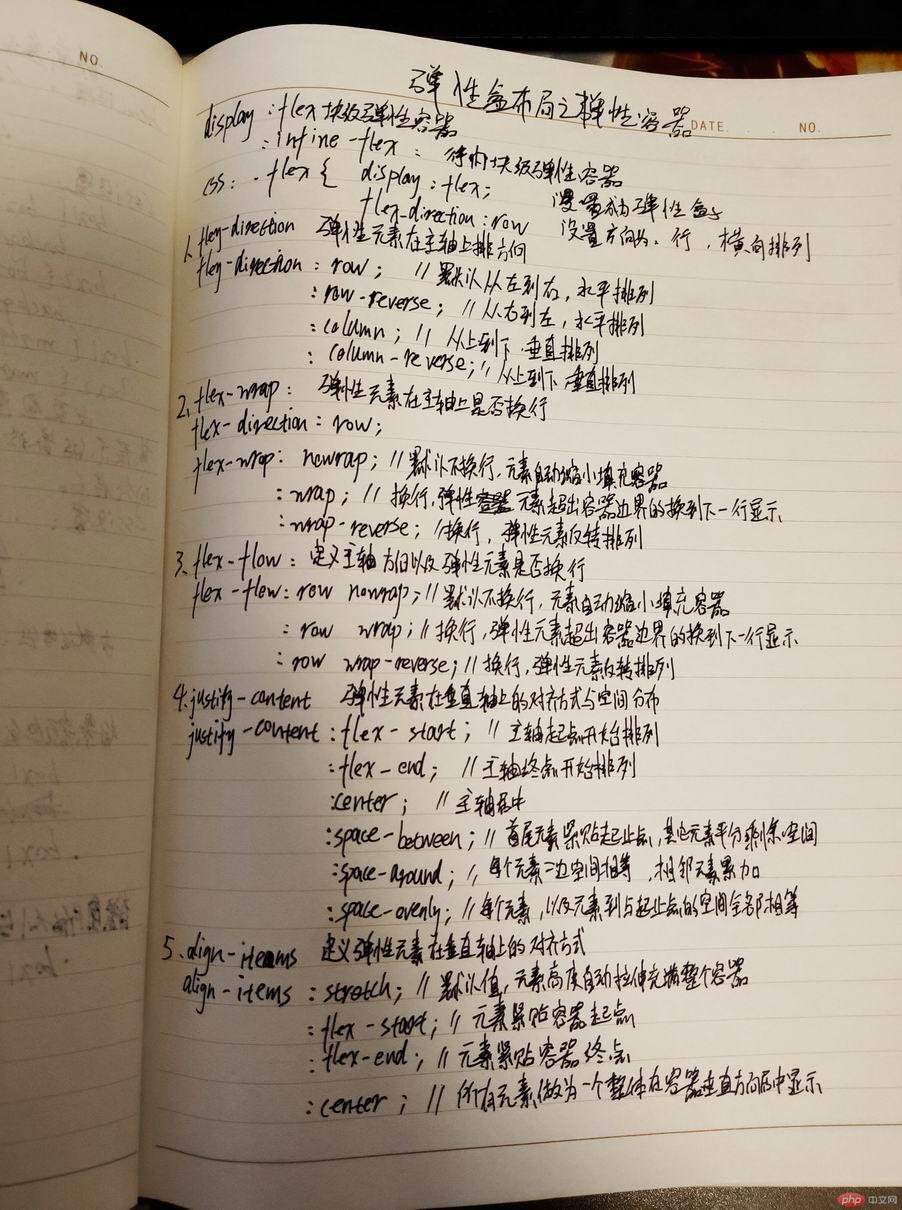 NO.
弹性盒布局之弹性容器
DATE. . . . NO.
display : flex 块级弹性容器
: infine-flex : 行内块级弹性容器
css: .flex { display : flex; 设置成为弹性盒子
flex-direction : row 设置方向为:行,横向排列
1. fley-direction 弹性元素在主轴上排方向
fley-direction : row ; // 默认从左到右,水平排列
: row-reverse ; // 从右到左,水平排列
: column ; // 从上到下 垂直排列
: column-reverse; // 从上到下 垂直排列
2. flex-wrap: 弹性元素在主轴上是否换行
flex-direction : row;
flex-wrap: nowrap; // 默认不换行,元素自动缩小填充容器
: wrap ; // 换行,弹性元素超出容器边界的换到下一行显示
: wrap-reverse; // 换行,弹性元素反转排列
3. flex-flow : 定义主轴方向以及弹性元素是否换行
flex-flow: row nowrap; // 默认不换行,元素自动缩小填充容器
: row wrap; // 换行,弹性元素超出容器边界的换到下一行显示
: row wrap-reverse; // 换行,弹性元素反转排列
4. justify-content 弹性元素在垂直轴上的对齐方式与空间分布
justify-content : flex-start ; // 主轴起点开始排列
: flex-end ; // 主轴终点开始排列
: center ; // 主轴居中
: space-between; // 首尾元素紧贴起止点,其它元素平分剩余空间
: space-around ; // 每个元素二边空间相等,相邻元素累加
: space-evenly; // 每个元素,以及元素到与起止点的空间全部相等
5. align-items 定义弹性元素在垂直轴上的对齐方式
align-items : stretch; // 默认值,元素高度自动拉伸充满整个容器
: flex-start; // 元素紧贴容器起点
: flex-end; // 元素紧贴容器终点
: center ; // 所有元素做为一个整体在容器垂直方向居中显示
php 中文网